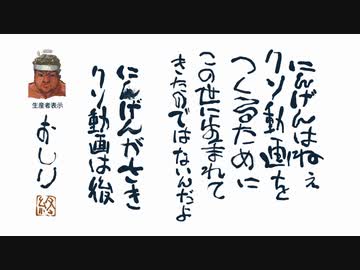 にんげんはねぇ
クソ動画を
つくるために
この世にうまれて
きたのではないんだよ
にんげんがさき
クソ動画は後
生産者表示
おしり